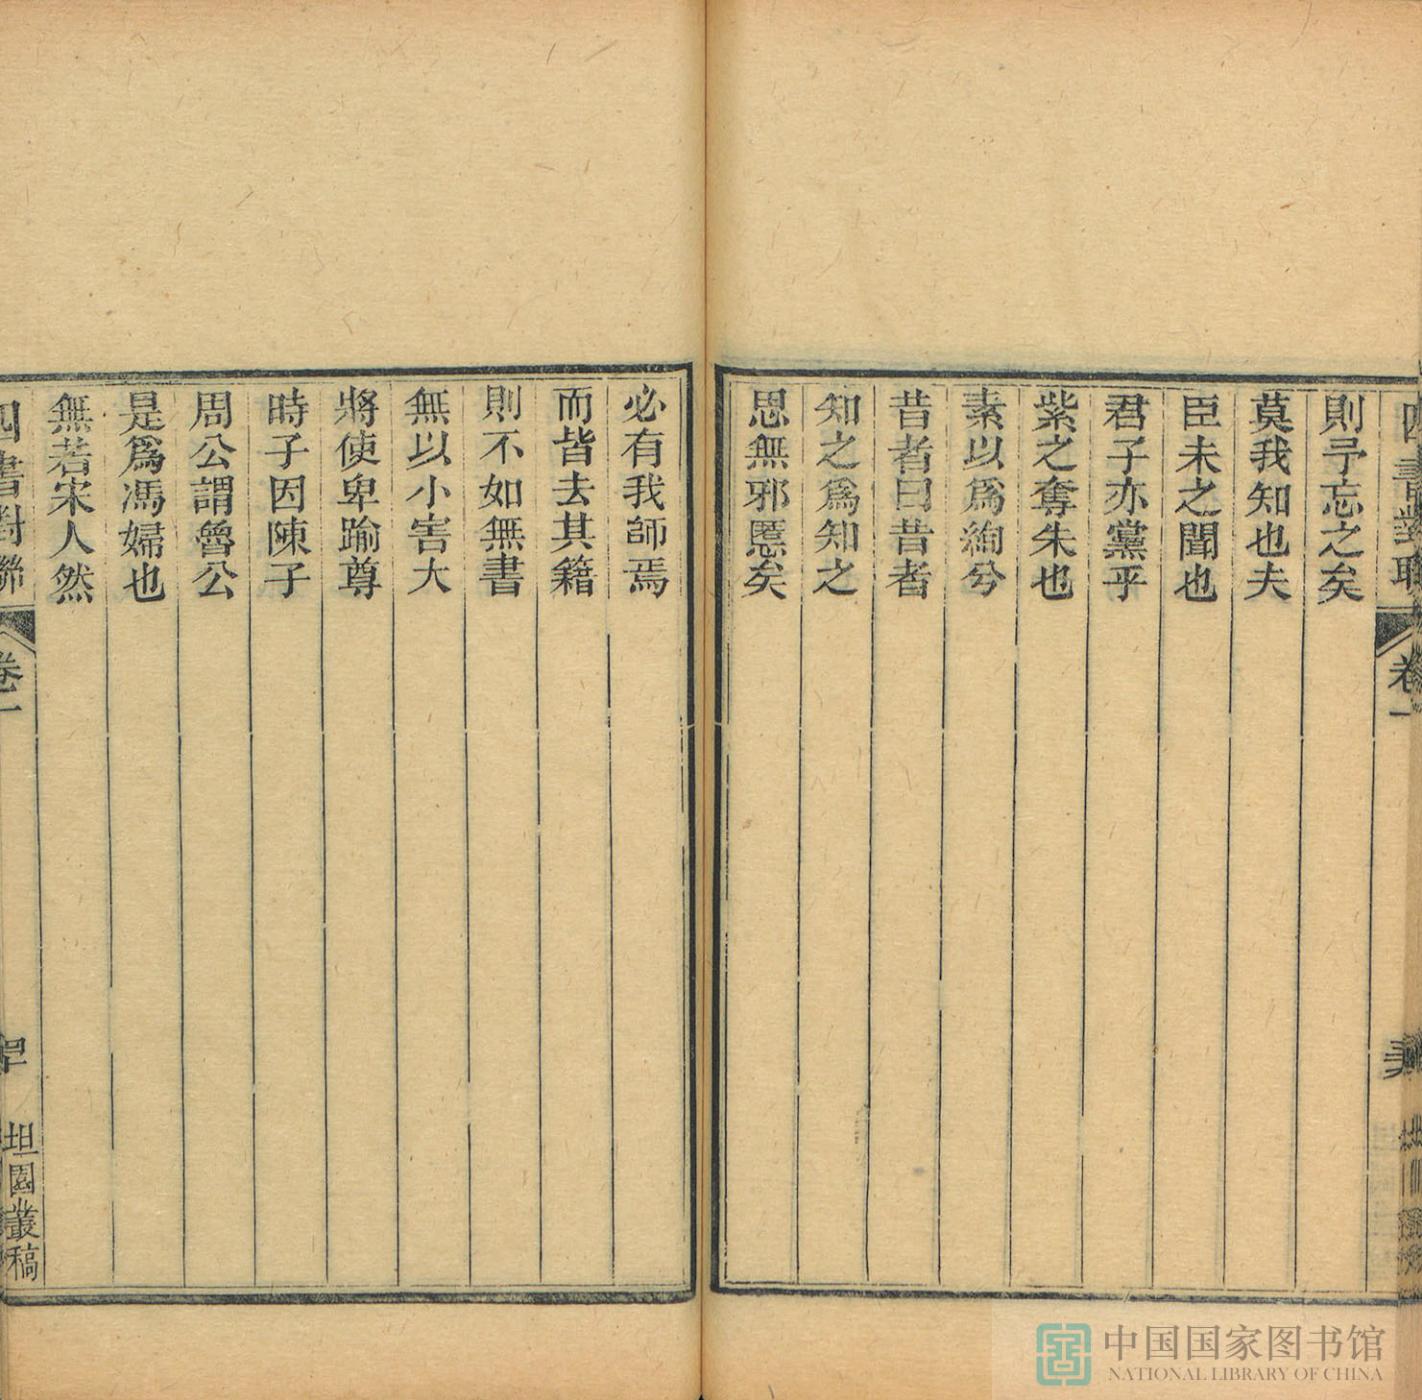 四書對聯 卷一
則予忘之矣
莫我知也夫
臣未之聞也
君子亦黨乎
紫之奪朱也
素以爲絢兮
昔者曰昔者
知之爲知之
思無邪慝矣
必有我師焉
而皆去其籍
則不如無書
無以小害大
將使卑踰尊
時子因陳子
周公謂魯公
是爲馮婦也
無若宋人然
四書對聯 卷一 坦園叢稿
中国国家图书馆
NATIONAL LIBRARY OF CHINA